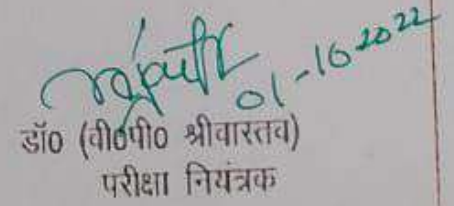 01-10 2022
डॉ0 (वी0पी0 श्रीवास्तव)
परीक्षा नियंत्रक